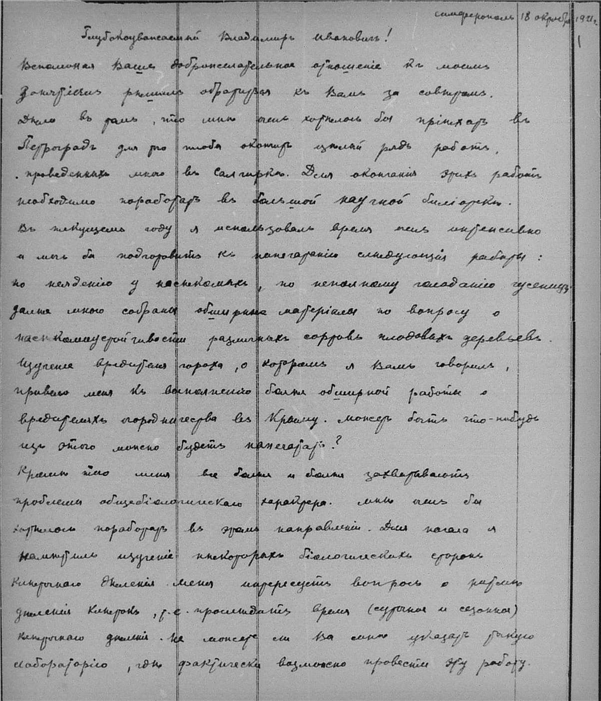 Симферополь 18 октября 1921 г.
1
Глубокоуважаемый Владимиръ Ивановичъ!
Вспоминая Ваше доброжелательное отношеніе къ моимъ
занятіямъ рѣшилъ обратиться къ Вамъ за совѣтомъ.
Дѣло въ томъ, что мнѣ очень хотѣлось бы пріѣхать въ
Петроградъ для того чтобы окончить цѣлый рядъ работъ,
проведенныхъ мною въ Салгиркѣ. Для окончанія этихъ работъ
необходимо поработать въ большой научной библіотекѣ.
Въ текущемъ году я использовалъ время очень интенсивно
и могъ бы подготовить къ напечатанію слѣдующія работы:
по неяденію у насѣкомыхъ, по неполному голоданію гусеницъ
далѣе мною собраны обширные матеріалы по вопросу о
насѣкомоустойчивости различныхъ сортовъ плодовыхъ деревьевъ.
Изученіе вредителя гороха, о которомъ я Вамъ говорилъ,
привело меня къ выполненію болѣе обширной работы о
вредителяхъ огородничества въ Крыму. Можетъ быть что-нибудь
изъ этого можно будетъ напечатать?
Кромѣ того меня все болѣе и болѣе захватываютъ
проблемы общебіологическаго характера. Мнѣ очень бы
хотѣлось поработать въ этомъ направленіи. Для начала я
намѣтилъ изученіе нѣкоторыхъ біологическихъ сторонъ
клѣточнаго дѣленія. Меня интересуетъ вопросъ о ритмѣ
дѣленія клѣтокъ, т.е. прослѣдить время (суточное и сезонное)
клѣточнаго дѣленія. Не можете ли Вы мнѣ указать такую
лабораторію, гдѣ фактически возможно провести эту работу.